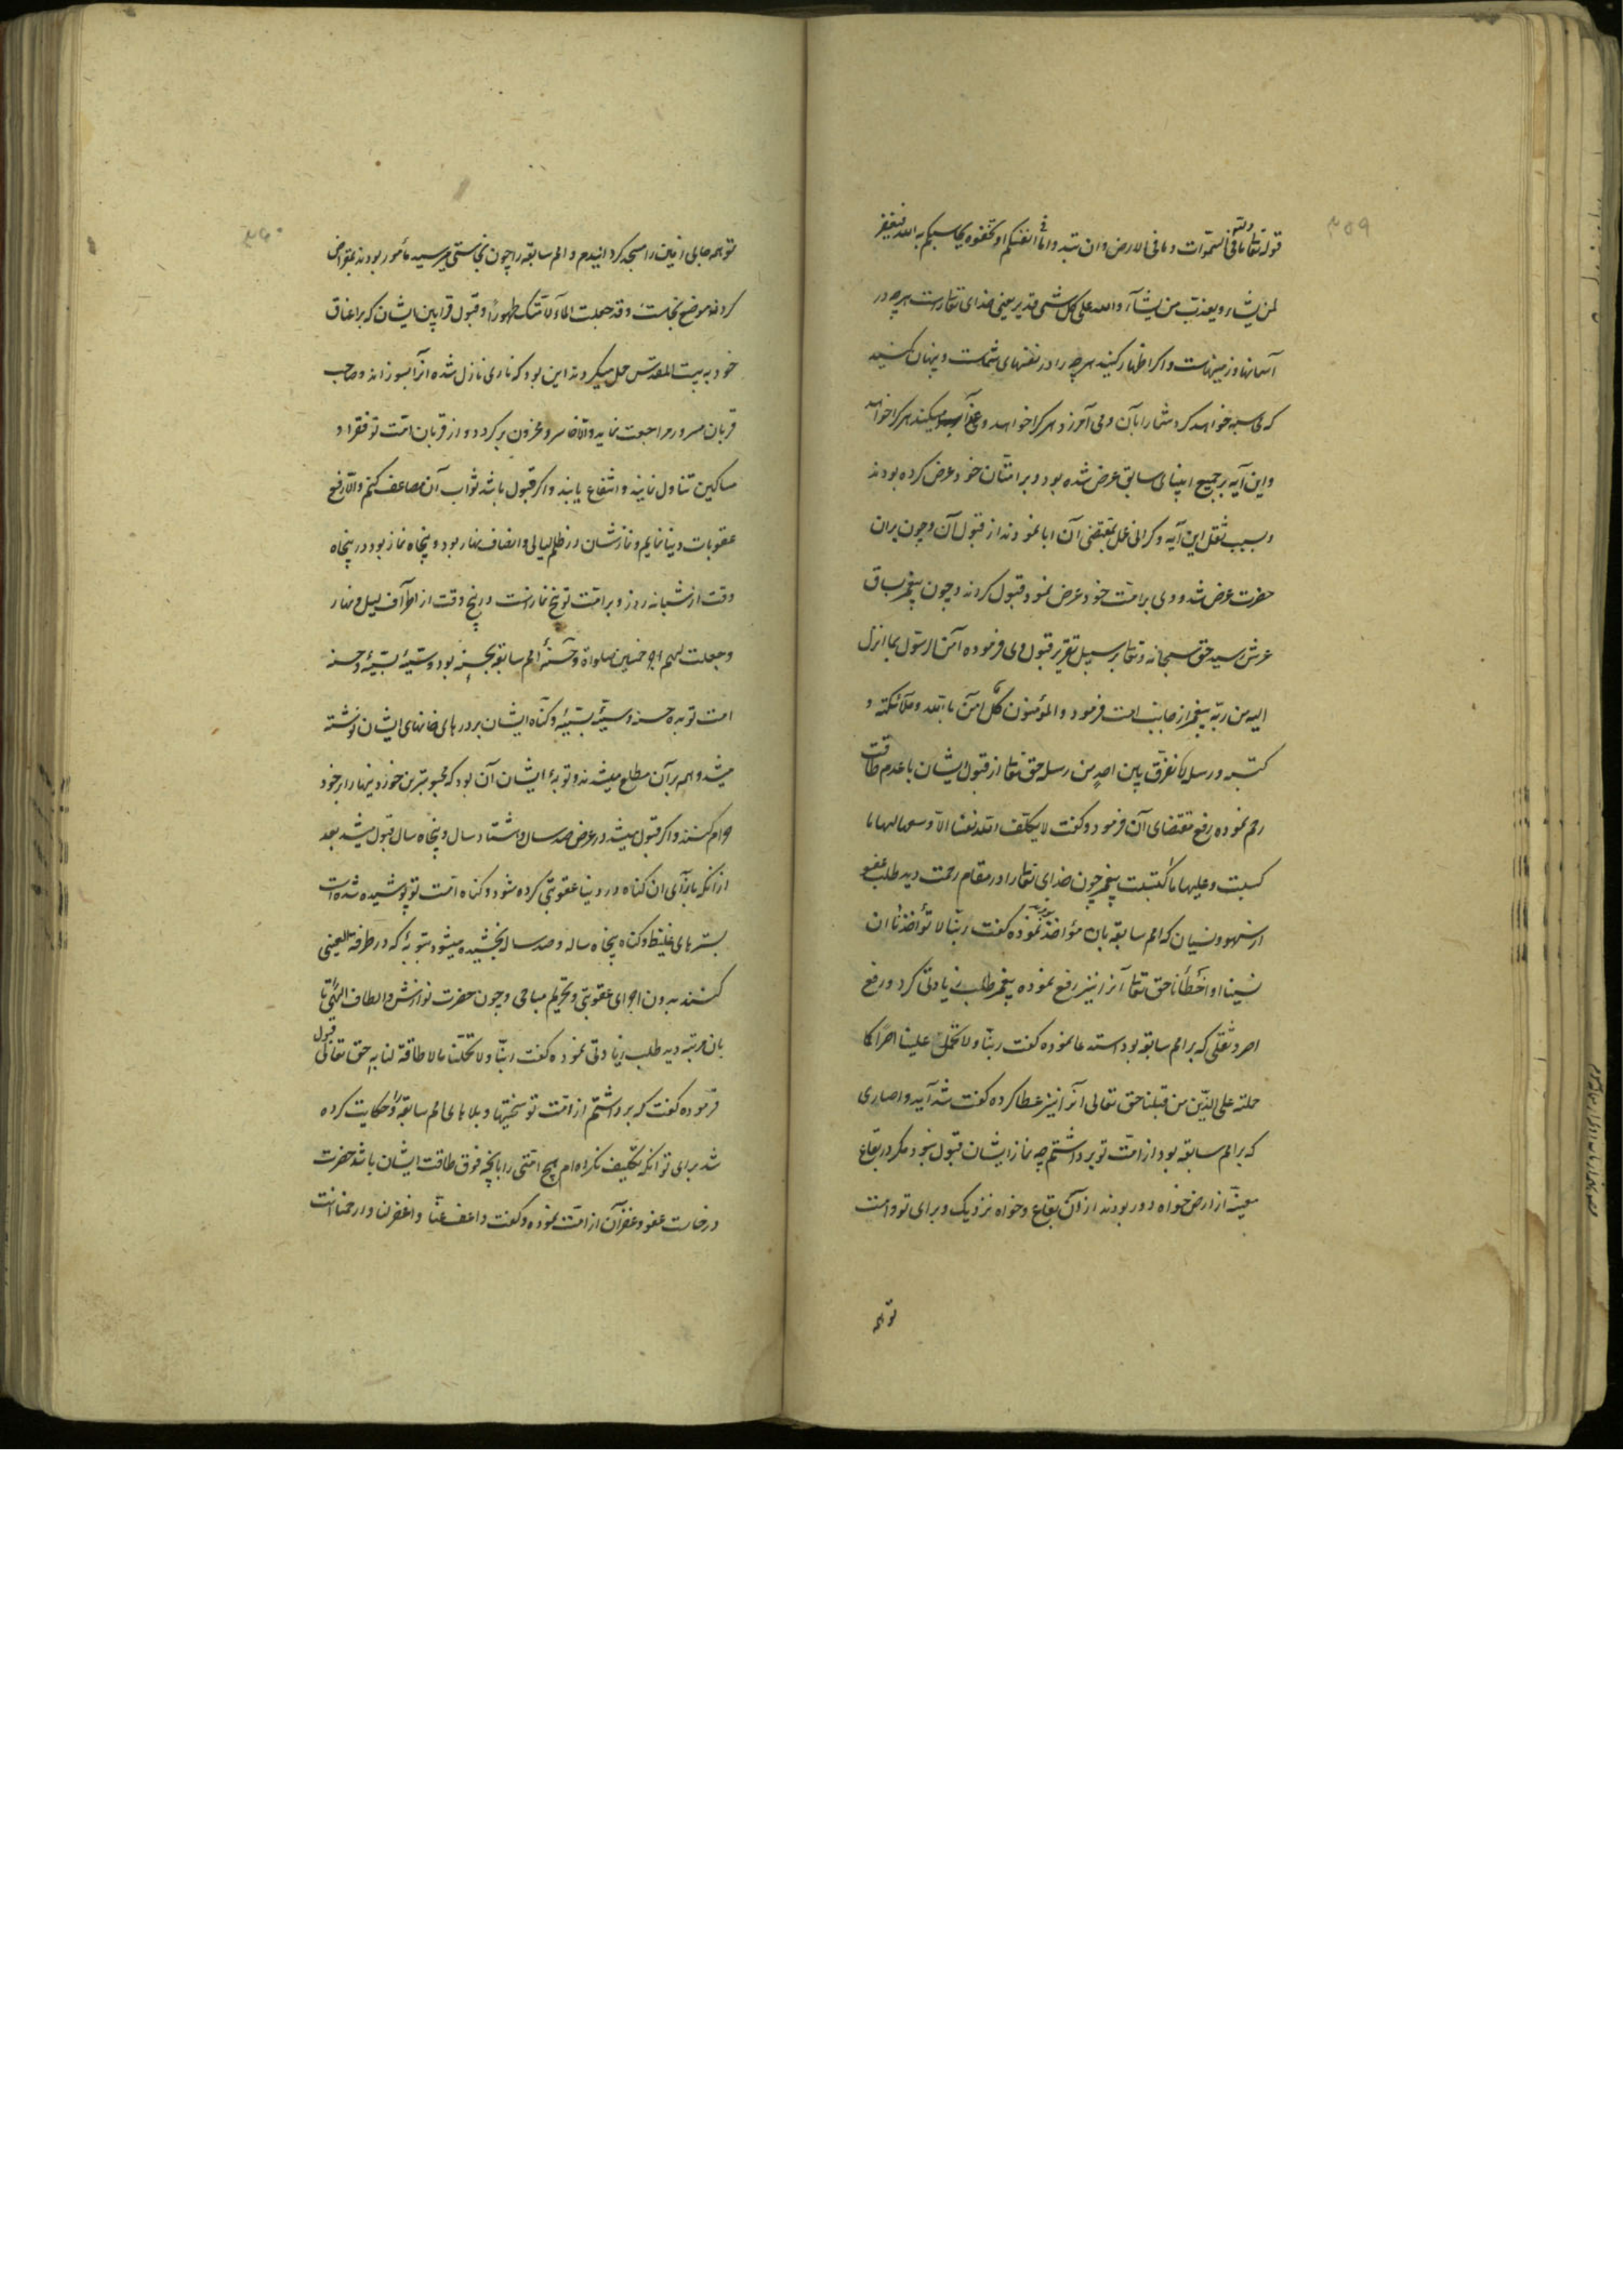 ۳۵۹
قوله تعالی ولله ما فی السموات وما فی الارض وان تبدوا ما فی انفسکم او تخفوه یحاسبکم به الله فیغفر
لمن یشاء ویعذب من یشآء والله علی کل شئ قدیر یعنی خدای تعالی راست هرچه در
آسمانها وزمینهاست واکر اظهار کنید هرچه را در نفسهای شماست وپنهان کنید
که محاسبه خواهد کرد شما را بآن ومی آمرزد هر کرا خواهد وعذاب میکند هر کرا خواهد
واین آیه بر جمیع انبیای سابق عرض شده بود وبر امتان خود عرض کرده بودند
وبسبب ثقل این آیه وکرانی عمل بمقتضی آن ابا نمودند از قبول آن وچون بران
حضرت عرض شد ووی بر امت خود عرض نمود قبول کردند وچون پیغمبر بساق
عرش رسید حق سبحانه وتعالی بر سبیل تقریر قبول وی فرموده آمن الرسول بما انزل
الیه من ربه پیغمبر از جانب امت فرمود والمؤمنون کل آمن بالله وملآئکته و
کتبه ورسله لا نفرق بین احد من رسله حق تعالی از قبول ایشان با عدم طاقت
رحم نموده رفع مقتضای آن فرمود وکفت لا یکلف الله نفسا الا وسعها لها ما
کسبت وعلیها ما اکتسبت پیغمبر چون خدای تعالی را در مقام رحمت دید طلب عفو
از سهو ونسیان که امم سابقه بان مؤاخذ بودند نموده کفت ربنا لا تؤاخذنا ان
نسینا او اخطأنا حق تعالی آنرا نیز رفع نموده پیغمبر طلب زیادتی کرد ورفع
اصر وثقلی که بر امم سابقه بود استدعا نموده کفت ربنا ولا تحمل علینا اصرا کما
حملته علی الذین من قبلنا حق تعالی آنرا نیز عطا کرده کفت شدآید واصاری
که بر امم سابقه بود از امت تو برداشتم چه نماز ایشان قبول نبود مکر در بقاع
معینه از ارض خواه دور بودند از آن بقاع وخواه نزدیک وبرای تو وامت
تو همه
۳۶۰
تو همه جای زمین را مسجد کردانیدم وامم سابقه را چون نجاستی میرسید مأمور بودند بمقراض
کردن موضع نجاست وقد جعلت الماء لامتک طهورا وقبول قرابین ایشان که بر اعناق
خود به بیت المقدس حمل میکردند این بود که ناری نازل شده آنرا بسوزاند وصاحب
قربان مسرور مراجعت نماید والا خاسر ومحزون برکردد واز قربان امت تو فقراء و
مساکین تناول نمایند وانتفاع یابند واکر قبول باشد ثواب آن مضاعف کنم والا رفع
عقوبات دنیا نمایم ونمازشان در ظلم لیالی وانصاف نهار بود وپنجاه نماز بود در پنجاه
وقت از شبانه روز وبر امت تو پنج نمازست در پنج وقت از اطراف لیل ونهار
وجعلت لهم اجر خمسین صلواة وحسنه امم سابقه بحسنه بود وسیئه بسیئه وحسنه
امت تو بده حسنه وسیئه بسیئه وکناه ایشان بر درهای خانهای ایشان نوشته
میشد وهمه بر آن مطلع میشدند وتوبه ایشان آن بود که محبوبترین خوردنیها را بر خود
حرام کنند واکر قبول میشد در عرض صد سال وهشتاد سال وپنجاه سال قبول میشد بعد
از انکه بازآی ان کناه در دنیا عقوبتی کرده شود وکناه امت تو پوشیده شده است
بسترهای غلیظ وکناه پنجاه ساله وصد ساله بخشیده میشود بتوبهٔ که در طرفة العینی
کنند بدون اجرای عقوبتی وتحریم مباحی وچون حضرت نوازش والطاف الهی را تا
بان مرتبه دید طلب زیادتی نموده کفت ربنا ولا تحملنا ما لا طاقة لنا به حق تعالی قبول
فرموده کفت که برداشتم از امت تو سختیها وبلاهای امم سابقه را وحکایت کرده
شد برای تو انکه تکلیف نکرده ام هیچ امتی را بانچه فوق طاقت ایشان باشد حضرت
درخاست عفو وغفران از امت نموده وکفت واعف عنا واغفر لنا وارحمنا انت